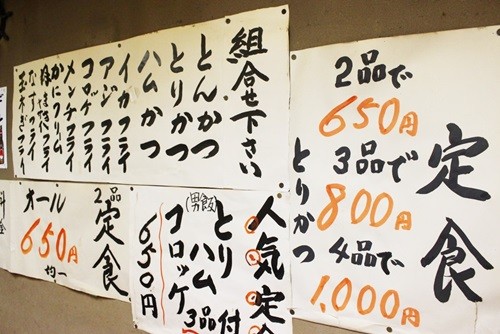 組合せ下さい
とんかつ
とりかつ
ハムかつ
イカフライ
アジフライ
コロッケフライ
メンチフライ
かにクリーム
なすフライ
玉木ぎフライ
定食
2品で
650円
3品で
800円
4品で
1,000円
とりかつ
2品
定食
オール
650円
均一
人気定
とりハム
コロッケ
3品付
(男飯)
650円